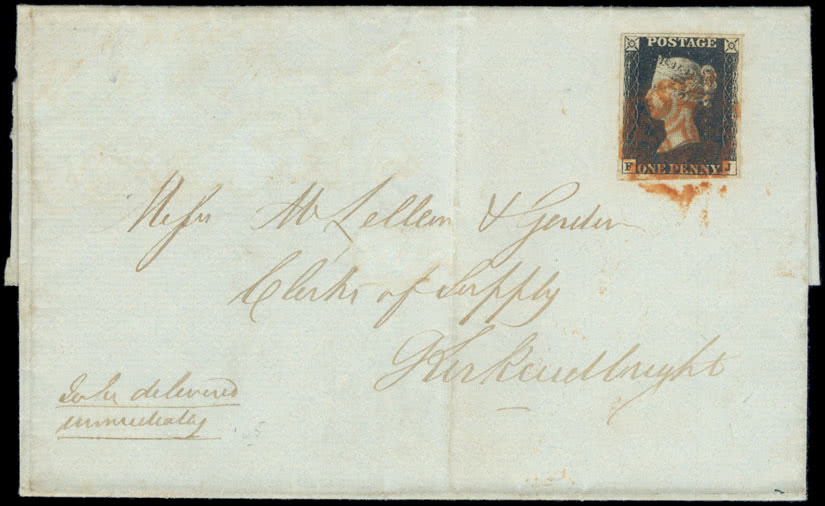 POSTAGE
F ONE PENNY J
Messrs McLellan & Gordon
Clerks of Supply
Kirkcudbright
To be delivered
immediately